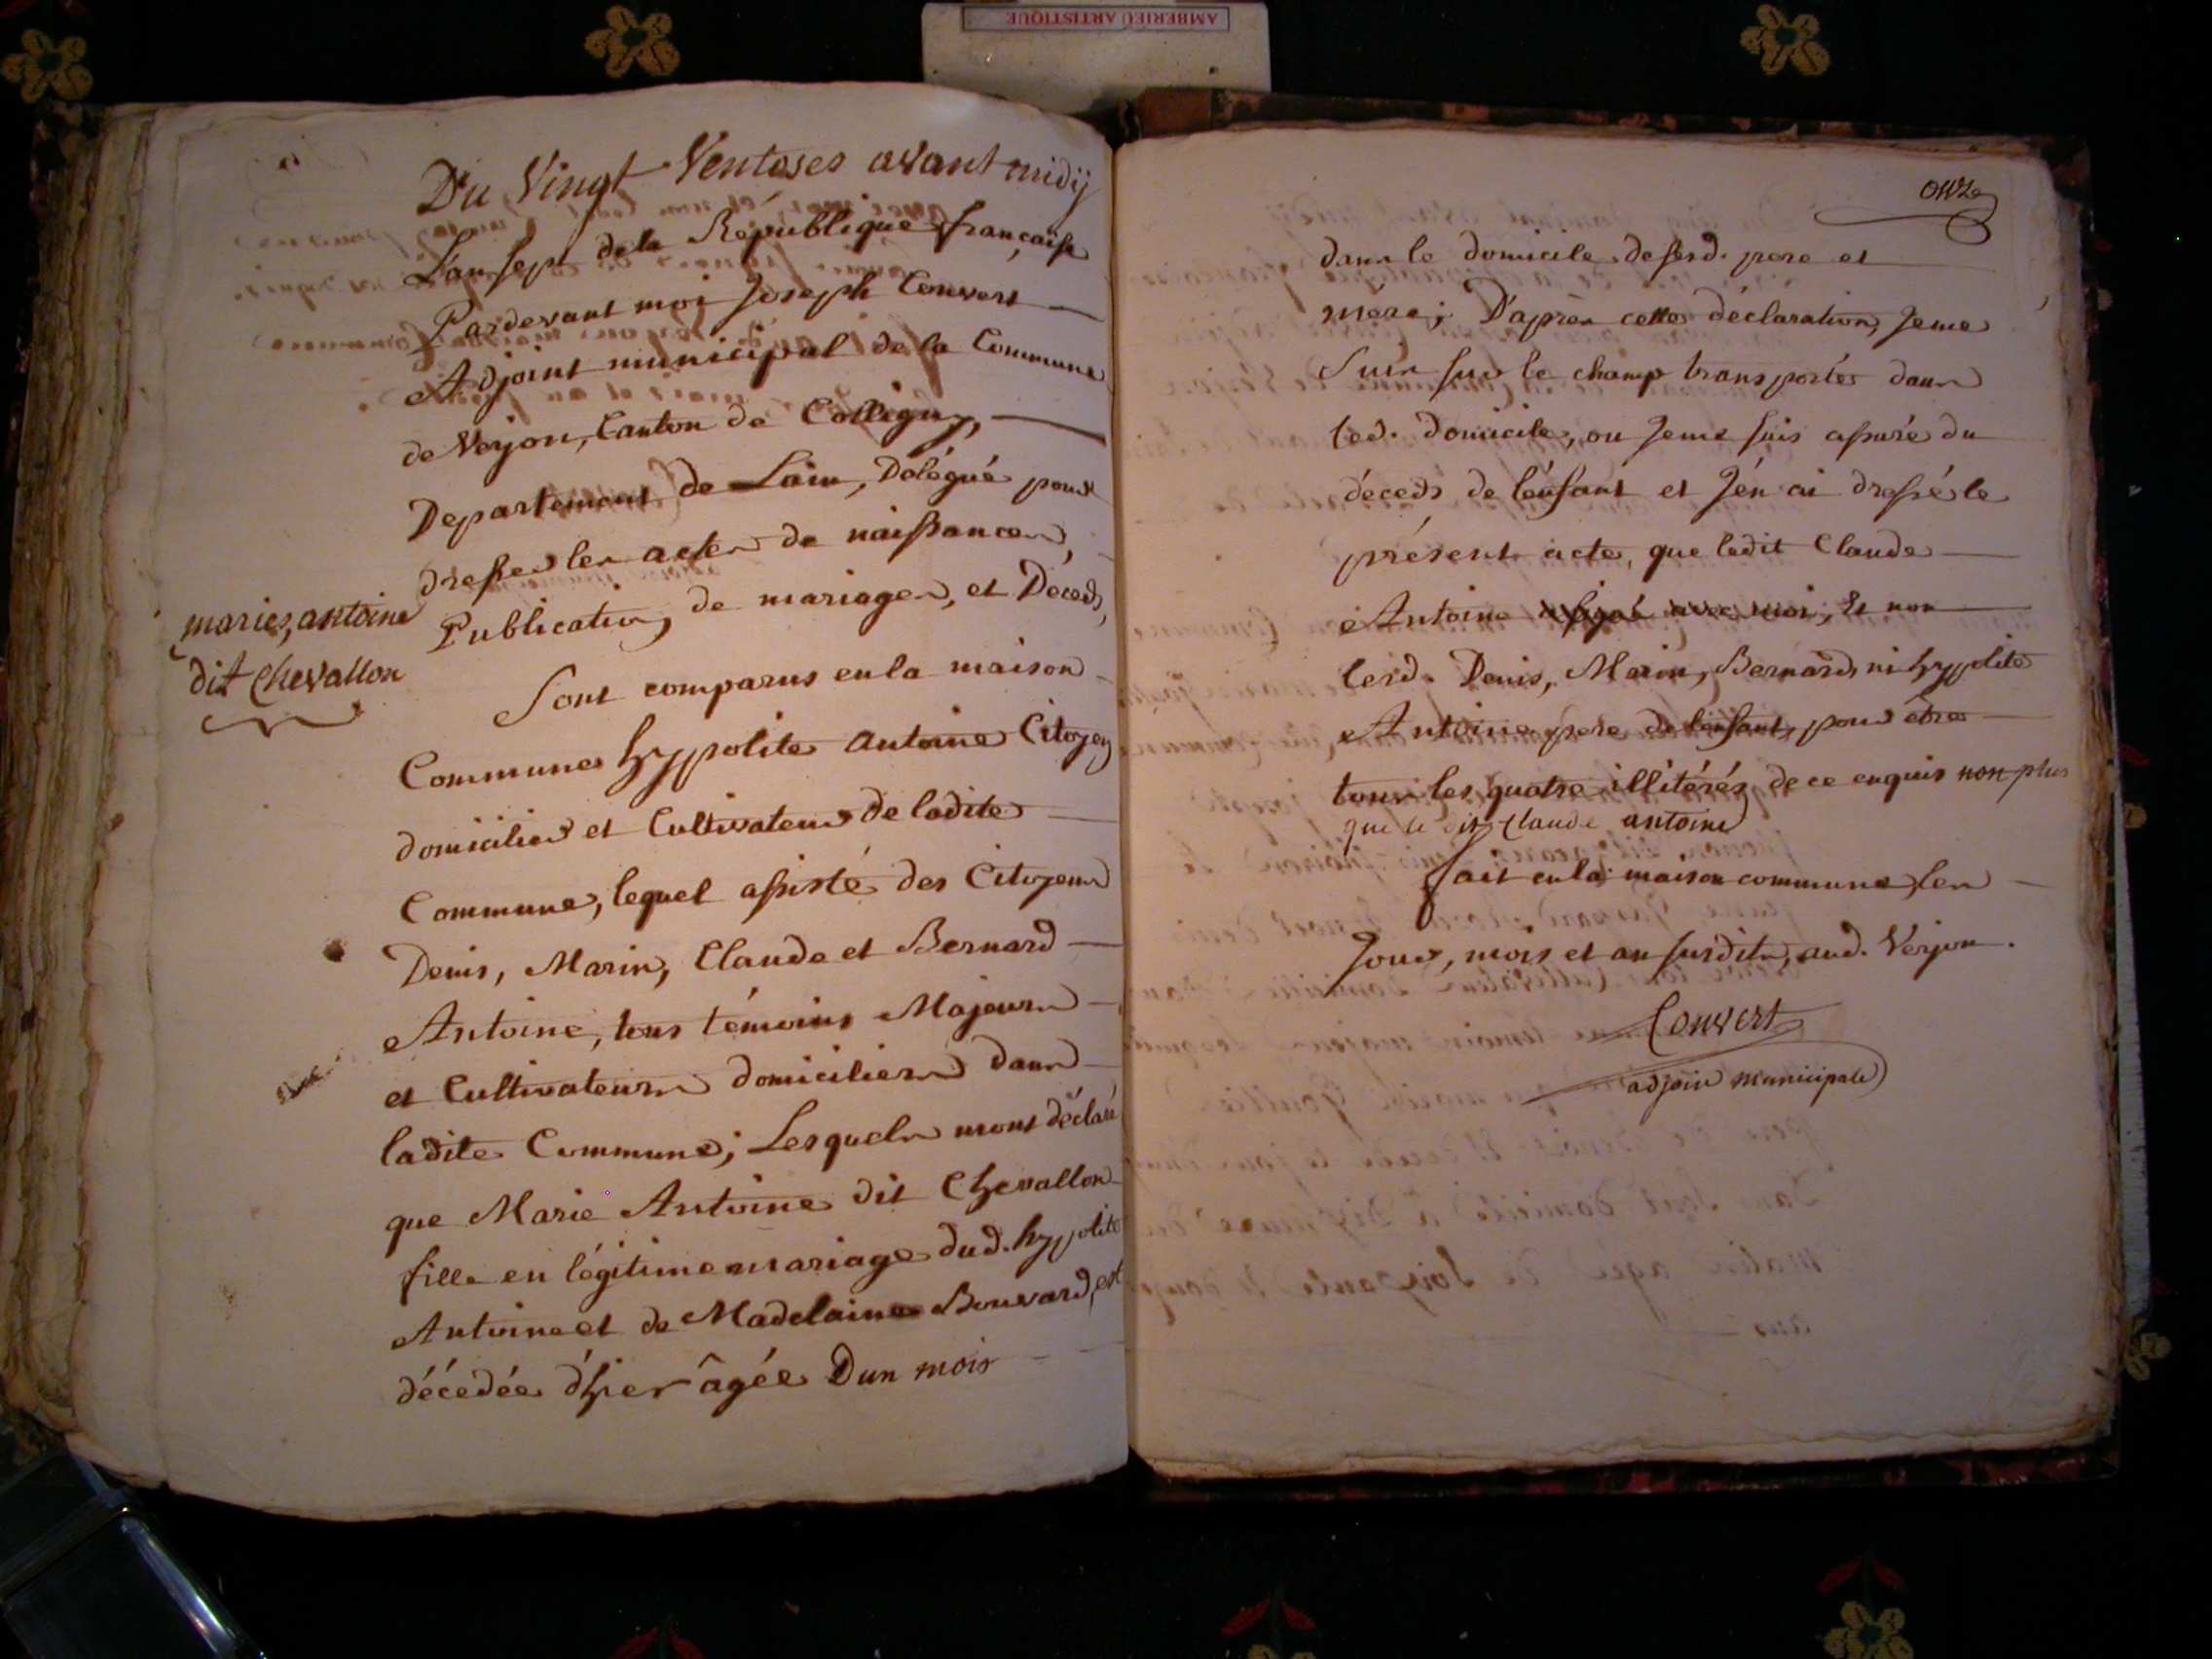 AMBERIEU ARTISTIQUE
Du Vingt Ventoses avant midij
L'an sept de la République française
Pardevant moi Joseph Convert
Adjoint municipal de la Commune
de Verjon, Canton de Colligny,
Departement de Lain, Délégué pour
dresser les actes de naissances,
Publication de mariages, et Déceds,
marie, antoine
dit Chevallon
Sont comparus en la maison
Commune hyppolite antoine Citoyen
domicilier et Cultivateur de ladite
Commune, lequel assisté des Citoyens
Denis, Marin, Claude et Bernard
Antoine, tous témoins Majeurs
et Cultivateurs domiciliers dans
ladite Commune; Lesquels mont déclaré
que Marie Antoine dit Chevallon
fille en légitime mariage dud. hyppolite
Antoine et de Madelaine Bouvard, est
décedée d'hier âgée Dun mois
onze
dans le domicile de sesd. pere et
mère; D'après cette déclaration, Je me
suis sur le champ transporter dans
led. domicile, ou Je me suis assuré du
déceds de l'énfant et J'én ai dressé le
présent acte, que ledit Claude
Antoine a signé avec moi, Et non
lesd. Denis, Marin, Bernard, ni hyppolite
Antoine pere de l'enfant, pour être
tous les quatre illitérés de ce enquis non plus
que le dit Claude antoine
fait en la maison commune, les
Jour, mois et an susdits, aud. Verjon.
Convert
adjoin municipale